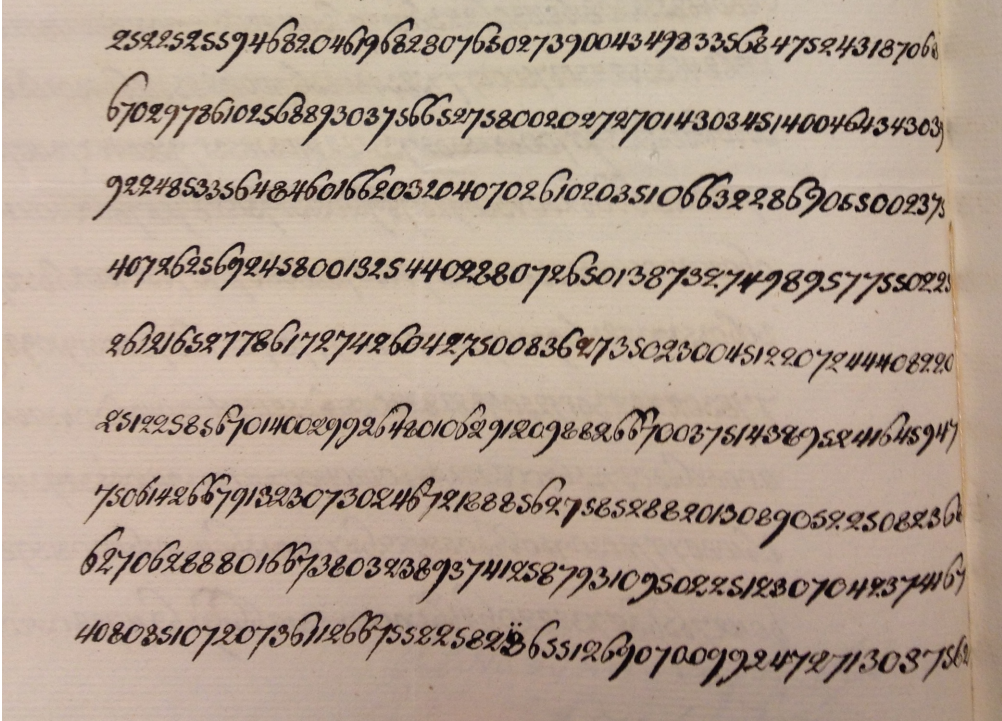 2522525594682046196828076502739004349833568475243187068
670297861025688930375665275800202727014303451400464343039
922485335648460166203204070261020351066322869065002375
4072625692458001325440228807265013873274989577550225
26121652778617274260427500836273502300451220724440822
2512258567014002992648010629120988266700375143895241645947
7506142667913230730246721888562758528820130890522508236
627062888016673803238937412587931095022512307042374167
40803510720736112667552258283655126907009924727130875